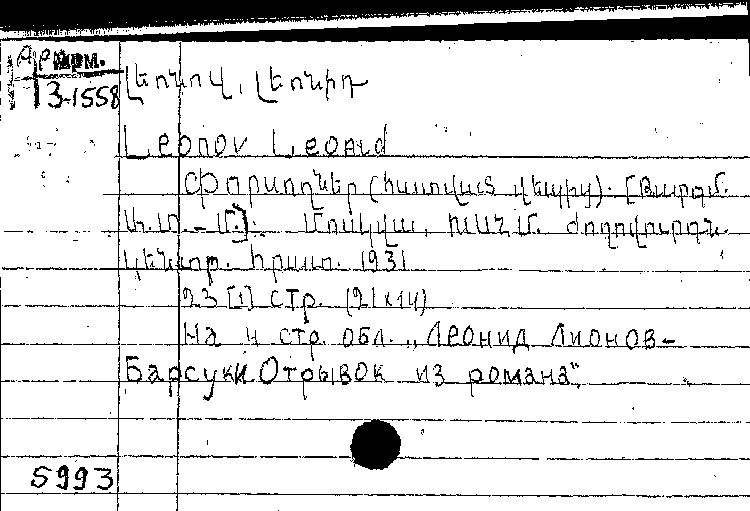 Арм.
3-1558
Լեոնով, Լեոնիդ
Leonov Leonid
Փորսողներ (հատված վեպից). [Թարգմ.
Մոսկվա, ԽՍՀՄ ժողովուրդն.
կենտր. հրատ. 1931
23 [1] стр. (21x14)
На 4 стр. обл. „Леонид Лионов-
Барсуки. Отрывок из романа".
5993